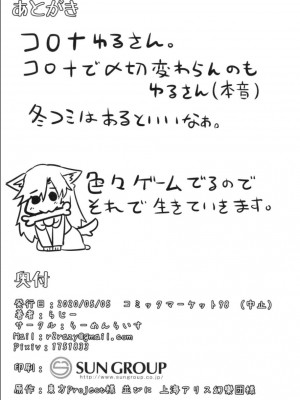 あとがき
コロナゆるさん。
コロナで〆切変わらんのも
ゆるさん(本音)
冬コミはあるといいなぁ。
色々ゲームでるので
それで生きていきます。
奥付
発行日：2020/05/05 コミックマーケット98 (中止)
著者：らじー
サークル：らーめんらいす
Mail：r2razy@gmail.com
Pixiv：1751333
印刷： SUN GROUP
http://www.sungroup.co.jp/
原作：東方Project様 並びに 上海アリス幻樂団様